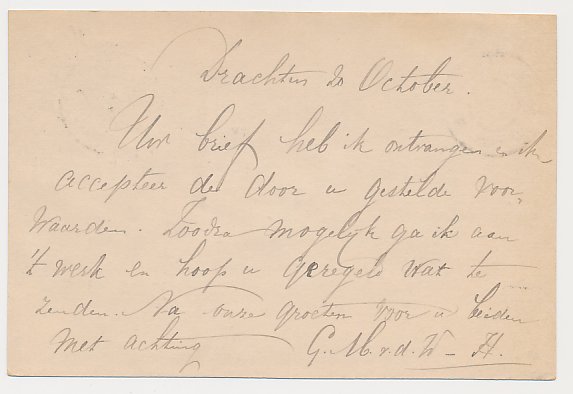 Drachten 20 October.
Uw brief heb ik ontvangen en ik
accepteer de door u gestelde voor
waarden. Zoodra mogelijk ga ik aan
't werk en hoop u geregeld wat te
zenden. Na onze groeten voor u beiden
Met achting G. M. v. d. W - H.